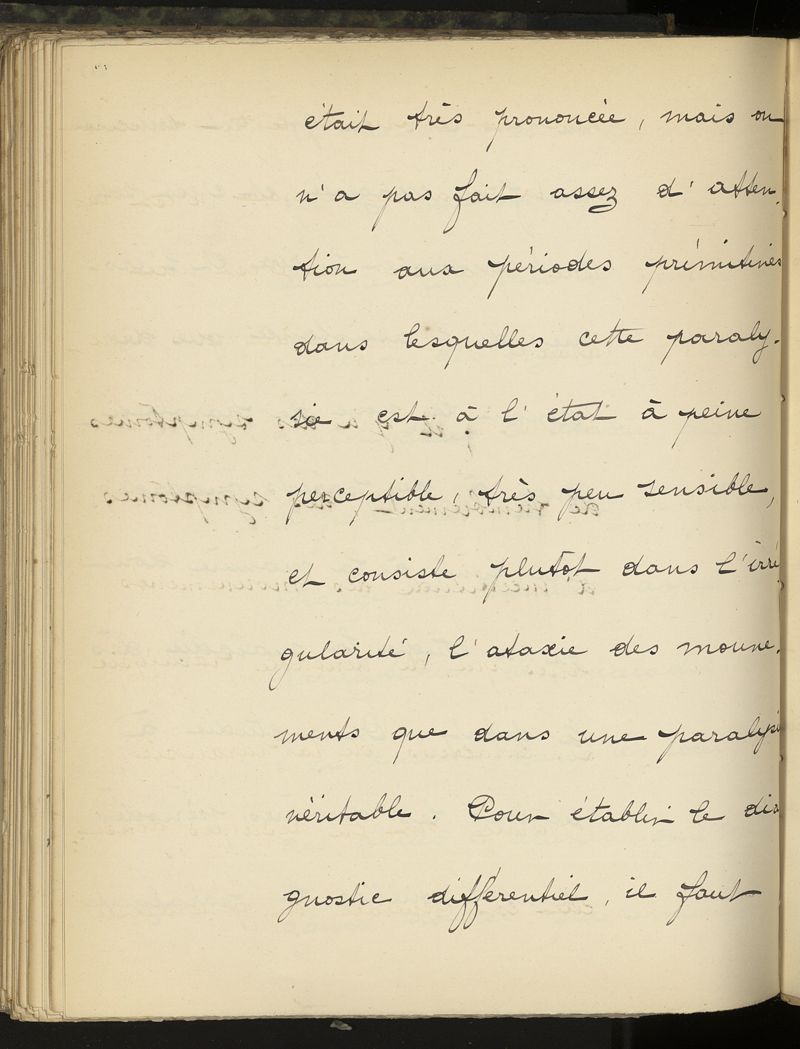 était très prononcée, mais on
n'a pas fait assez d'atten-
tion aux périodes primitives
dans lesquelles cette paraly-
sie est à l'état à peine
perceptible, très peu sensible,
et consiste plutôt dans l'irré
gularité, l'ataxie des mouve-
ments que dans une paralysi
véritable. Pour établir le dia
gnostic différentiel, il faut